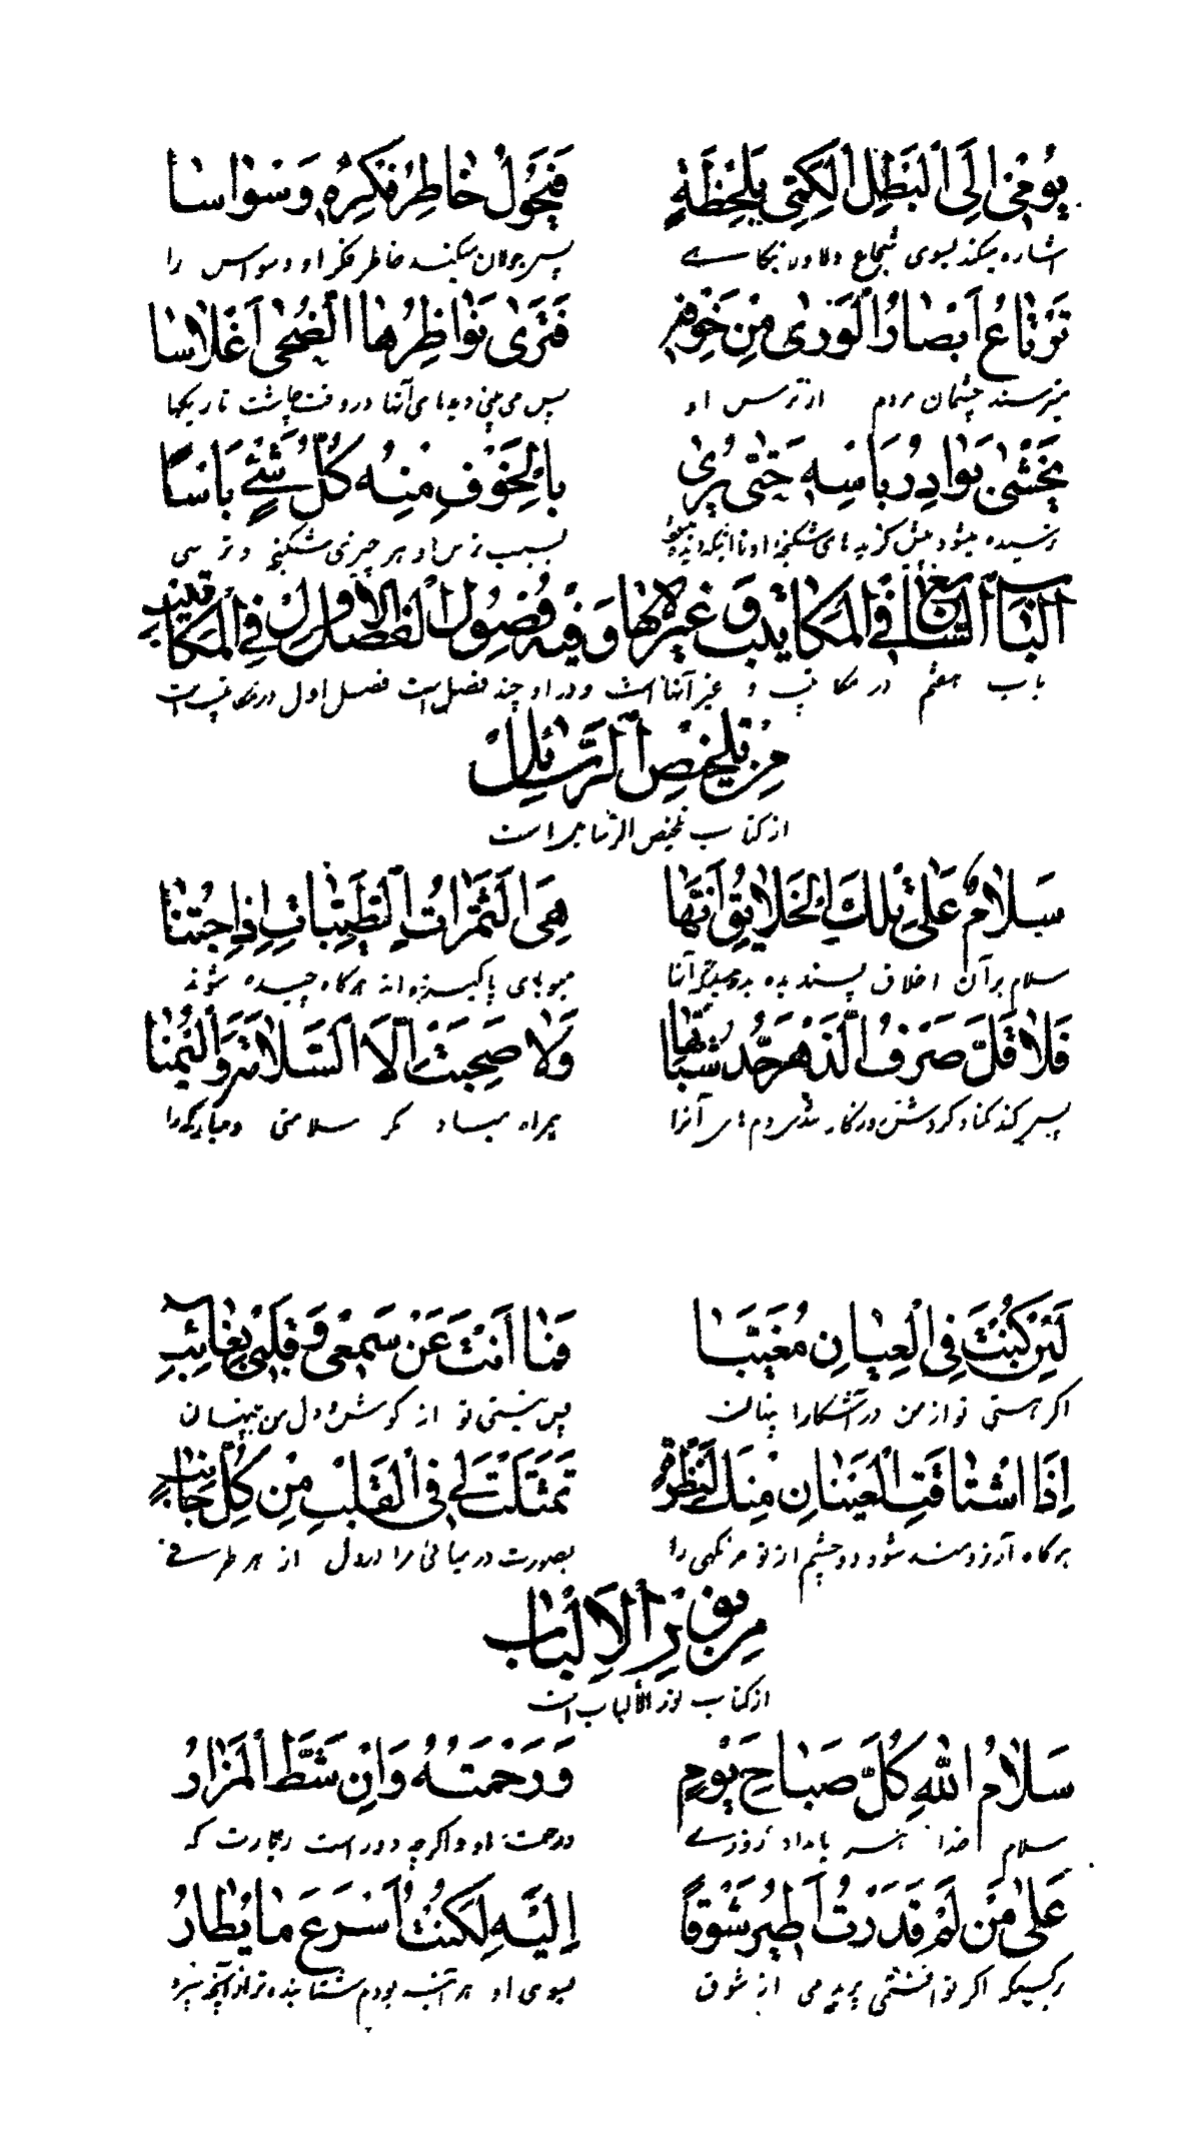 يُومِي اِلَى الْبَطَلِ الْكَمِيِّ بِلَحْظَةٍ فَيَجُولُ خَاطِرُ فِكْرِهِ وَسْوَاسَا
اشاره میکند بسوی شجاع دلاور نگاهے پس جولان میکند خاطر فکر او وسواس را
تَرْتَاعُ اَبْصَارُ الْوَرٰى مِنْ خَوْفِهِ فَتَرٰى نَوَاظِرُهَا الضُّحٰى اَغْلَاسَا
میترسد چشمان مردم از ترس او پس می بینی دیدهای آنها در وقت چاشت تاریکیها
يَخْشٰى بَوَادِرُ بَاسِهِ حَتّٰى يُرٰى بِالْخَوْفِ مِنْهُ كُلُّ شَيْءٍ بَاسًا
ترسیده میشود بسبب ترس او هر چیزی شکنجه و ترسی
اَلْبَابُ السَّابِعُ فِي الْمَكَاتِيْبِ وَ غَيْرِهَا وَ فِيْهِ فُصُوْلٌ الْفَصْلُ الْاَوَّلُ فِي الْمَكَاتِيْبِ
باب هفتم در مکاتیب و غیر آنها است و در او چند فصل است فصل اول در مکاتیب است
مِنْ تَلْخِيْصِ الرَّسَائِلِ
از کتاب تلخیص الرسایل است
سَلَامٌ عَلٰى تِلْكَ الْخَلَايِقِ اِنَّهَا هِيَ الثَّمَرَاتُ الطَّيِّبَاتُ اِذِ اجْتَنَا
سلام بر آن اخلاق پسندیده بدرستیکه آنها میوهای پاکیزه اند هرگاه چیده شوند
فَلَا قَلَّ صَرْفُ الدَّهْرِ حَدَّ شَبَاتِهَا وَلَا صَحِبَتْ اِلَّا السَّلَامَةَ وَ الْيُمْنَا
پس کند کناد گردش روزگار تندی دمهای آنرا همراه مباد مگر سلامتی و مبارکی را
لَئِنْ كُنْتَ فِي الْعِيَانِ مُغَيَّبًا فَمَا اَنْتَ عَنْ سَمْعِي وَ قَلْبِي بِغَائِبٍ
اگر هستی تو از من در آشکارا پنهان پس نیستی تو از گوش و دل من پنهان
اِذَا اشْتَاقَتِ الْعَيْنَانِ مِنْكَ لِنَظْرَةٍ تَمَثَّلْتَ لِي فِي الْقَلْبِ مِنْ كُلِّ جَانِبٍ
هرگاه آرزومند شود دو چشم از تو مر نگهی را بصورت در میائی مرا در دل از هر طرفے
مِنْ نُوْرِ الْاَلْبَابِ
از کتاب نور الألباب است
سَلَامُ اللهِ كُلَّ صَبَاحِ يَوْمٍ وَ رَحْمَتُهُ وَاِنْ شَطَّ الْمَزَارُ
سلام خدا هر بامداد روزے و رحمت او و اگرچه دور است زیارت که
عَلٰى مَنْ لَمْ قَدَرْتُ اَطِيْرُ شَوْقًا اِلَيْهِ لَكُنْتُ اَسْرَعَ مَا يُطَارُ
بر کسیکه اگر توانستمی پریدمی از شوق بسوی او هر آینه بودم شتابنده تر از آنچه پرد